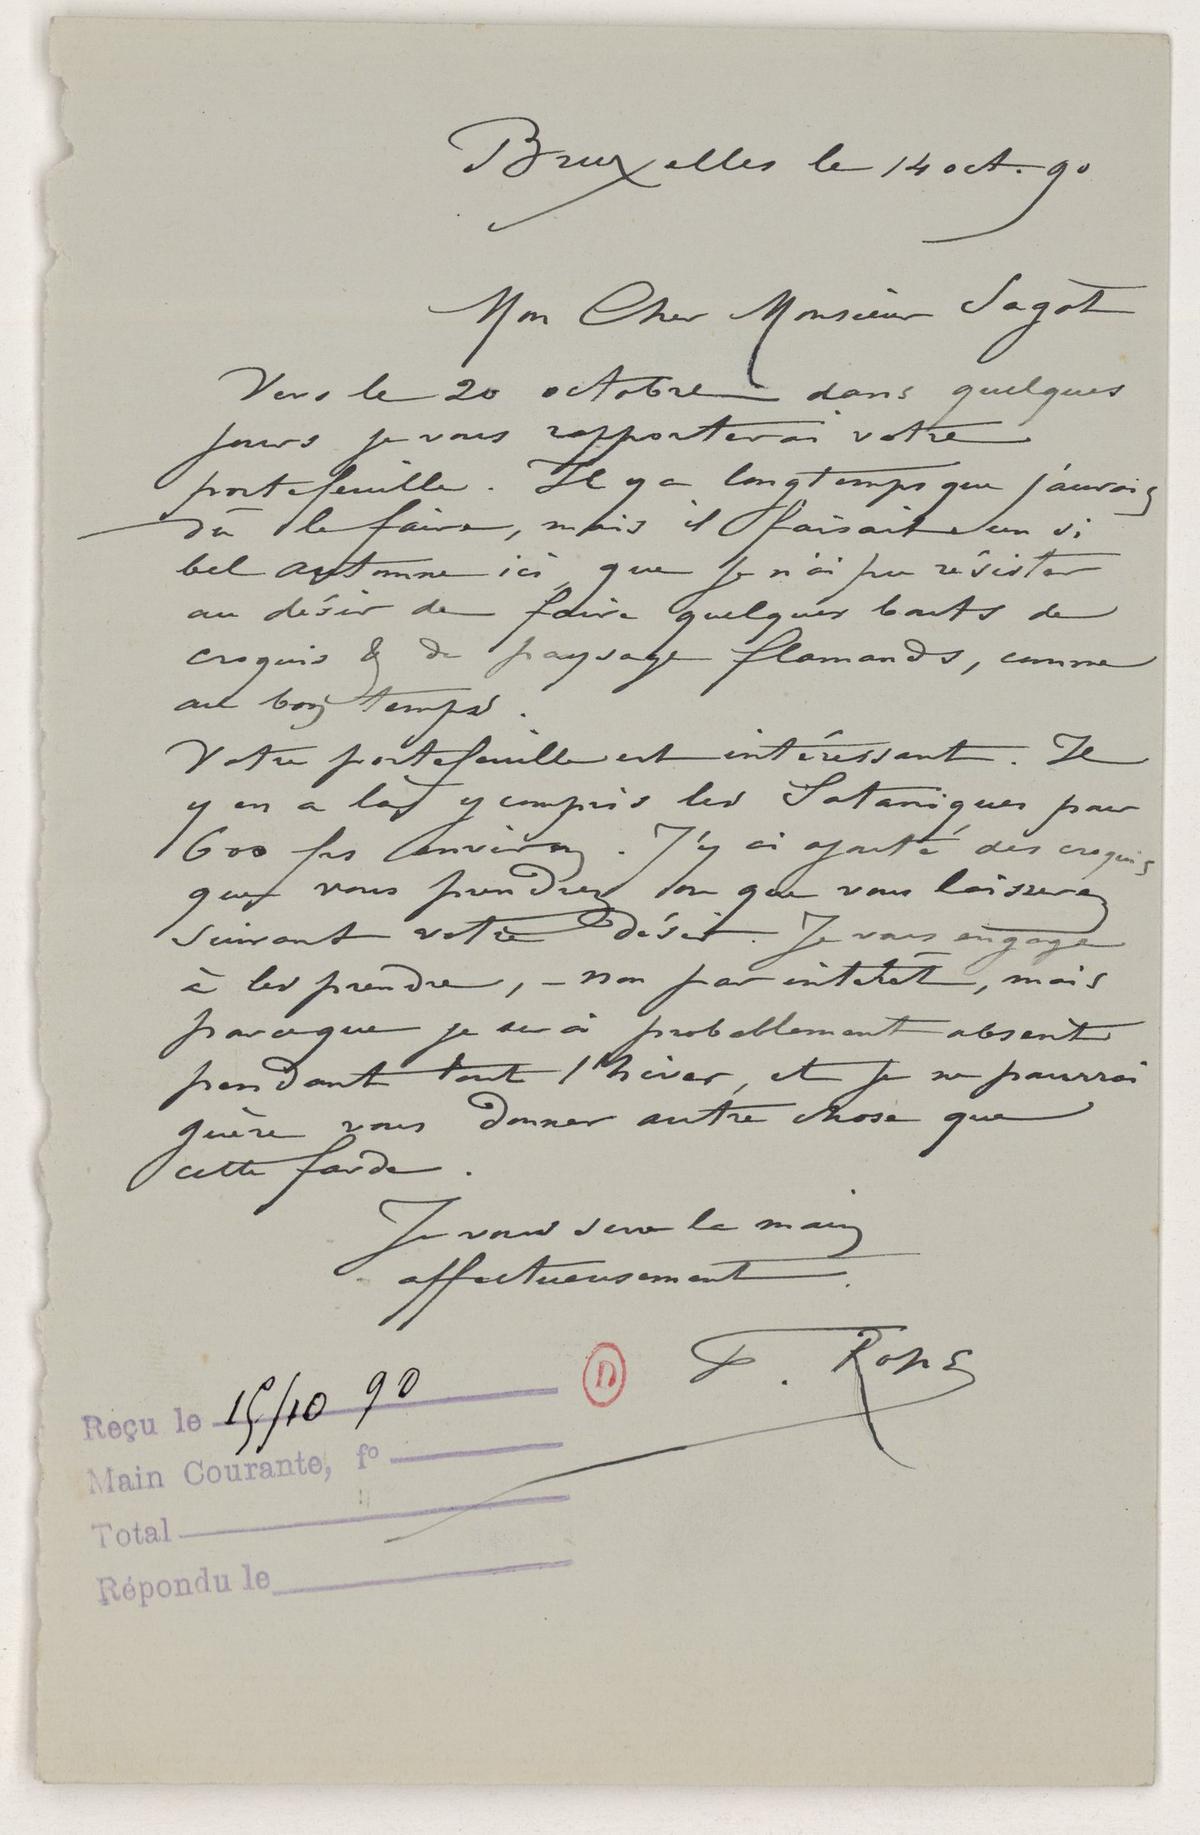 Bruxelles le 14 oct. 90
Mon Cher Monsieur Sagot
Vers le 20 octobre dans quelques
jours je vous rapporterai votre
portefeuille. Il y a longtemps que j'aurais
dû le faire, mais il faisait un si
bel automne ici, que je n'ai pu résister
au désir de faire quelques bouts de
croquis & de paysage flamands, comme
au bon temps.
Votre portefeuille est intéressant. Il
y en a là, y compris les Sataniques pour
600 frs environ. J'y ai ajouté des croquis
que vous prendrez ou que vous laisserez
suivant votre désir. Je vous engage
à les prendre, - non par intérêt, mais
parceque je serai probablement absent
pendant tout l'hiver, et je ne pourrai
guère vous donner autre chose que
cette farde.
Je vous serre la main
affectueusement.
F. Rops
D
Reçu le 15/10 90
Main Courante, fº
Total
Répondu le